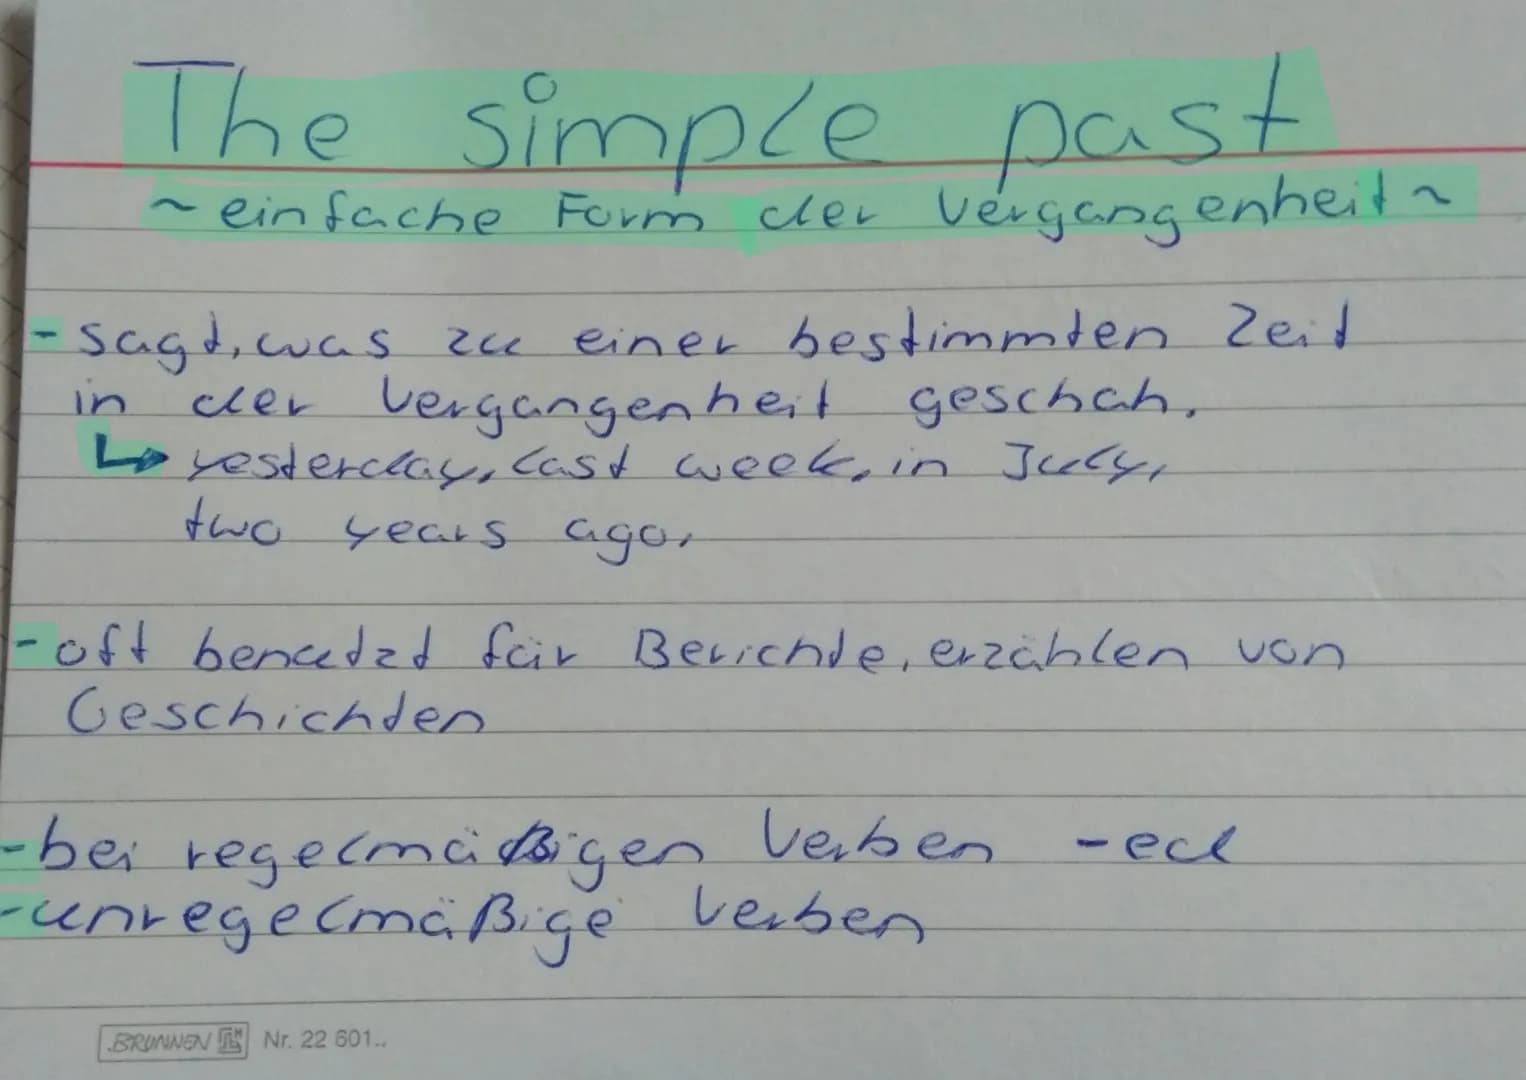 The simple past
~einfache Form der Vergangenheit~
-sagt, was zu einer bestimmten Zeit
in der Vergangenheit geschah.
↳ yesterday, last week, in July,
two years ago.
-oft benutzt für Berichte, erzählen von
Geschichten
-bei regelmäßigen Verben -ed
-unregelmäßige Verben
BRUNNEN Nr. 22 601..